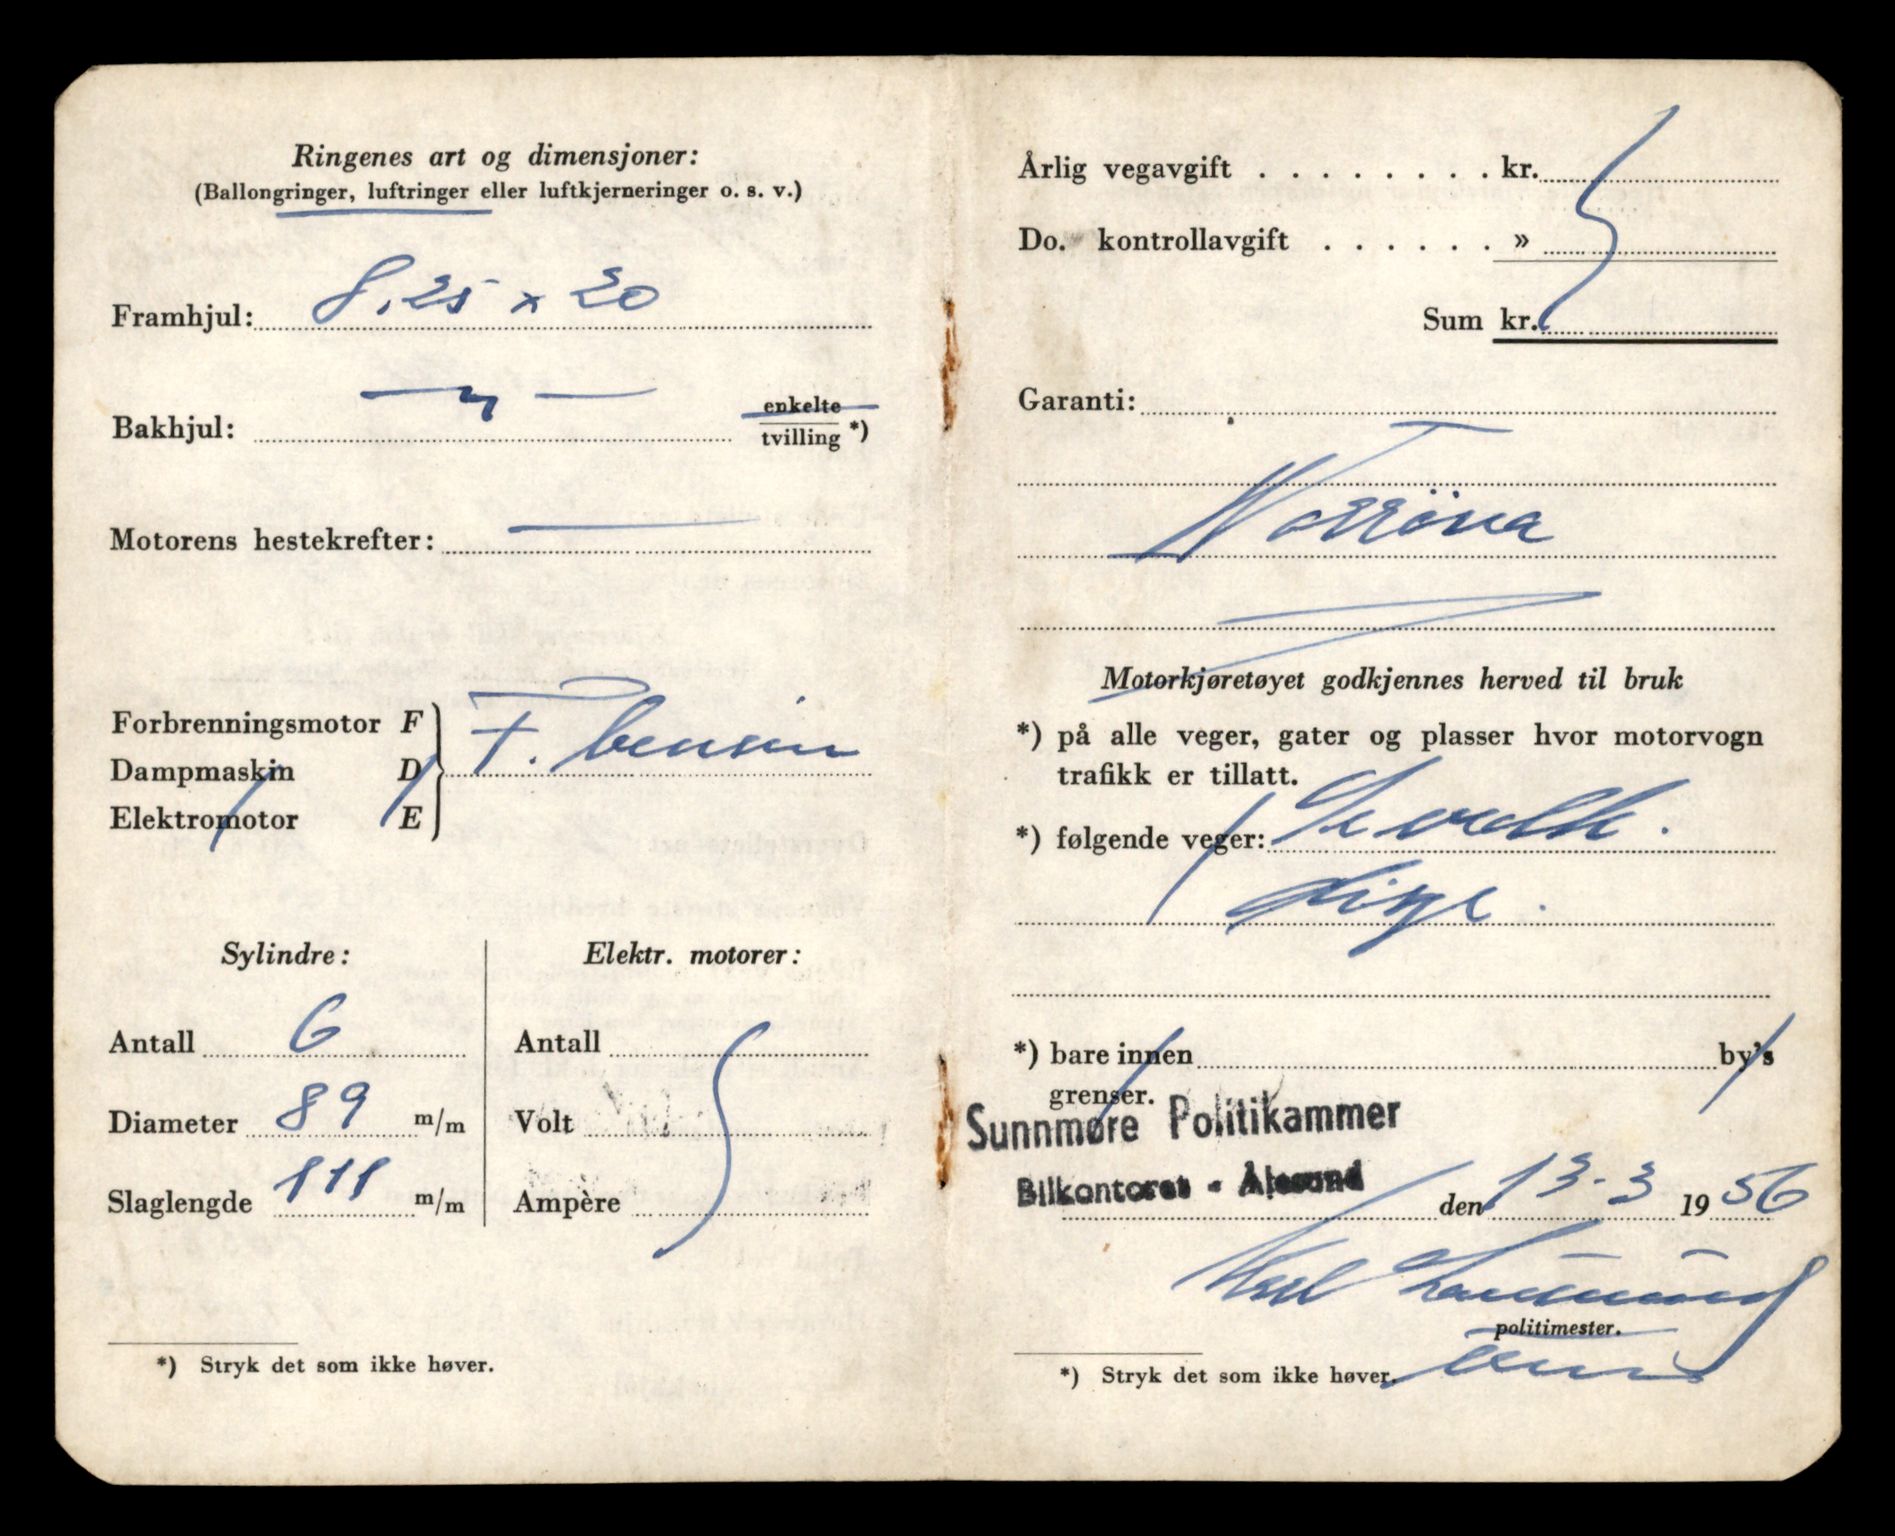 Ringenes art og dimensjoner:
(Ballongringer, luftringer eller luftkjerneringer o. s. v.)
Framhjul: 8.25 x 20
Bakhjul: — " — enkelte
tvilling *)
Motorens hestekrefter: —
Forbrenningsmotor F
Dampmaskin D F. bensin
Elektromotor E
Sylindre:
Antall 6
Diameter 89 m/m
Slaglengde 111 m/m
Elektr. motorer:
Antall
Volt
Ampère
*) Stryk det som ikke høver.
Årlig vegavgift . . . . . . . . kr.
Do. kontrollavgift . . . . . . »
Sum kr.
Garanti:
Norröna
Motorkjøretøyet godkjennes herved til bruk
*) på alle veger, gater og plasser hvor motorvogn
trafikk er tillatt.
*) følgende veger: Se vedk.
liste.
*) bare innen by's
grenser.
Sunnmøre Politikammer
Bilkontoret - Ålesund den 13-3 1956
politimester.
*) Stryk det som ikke høver.